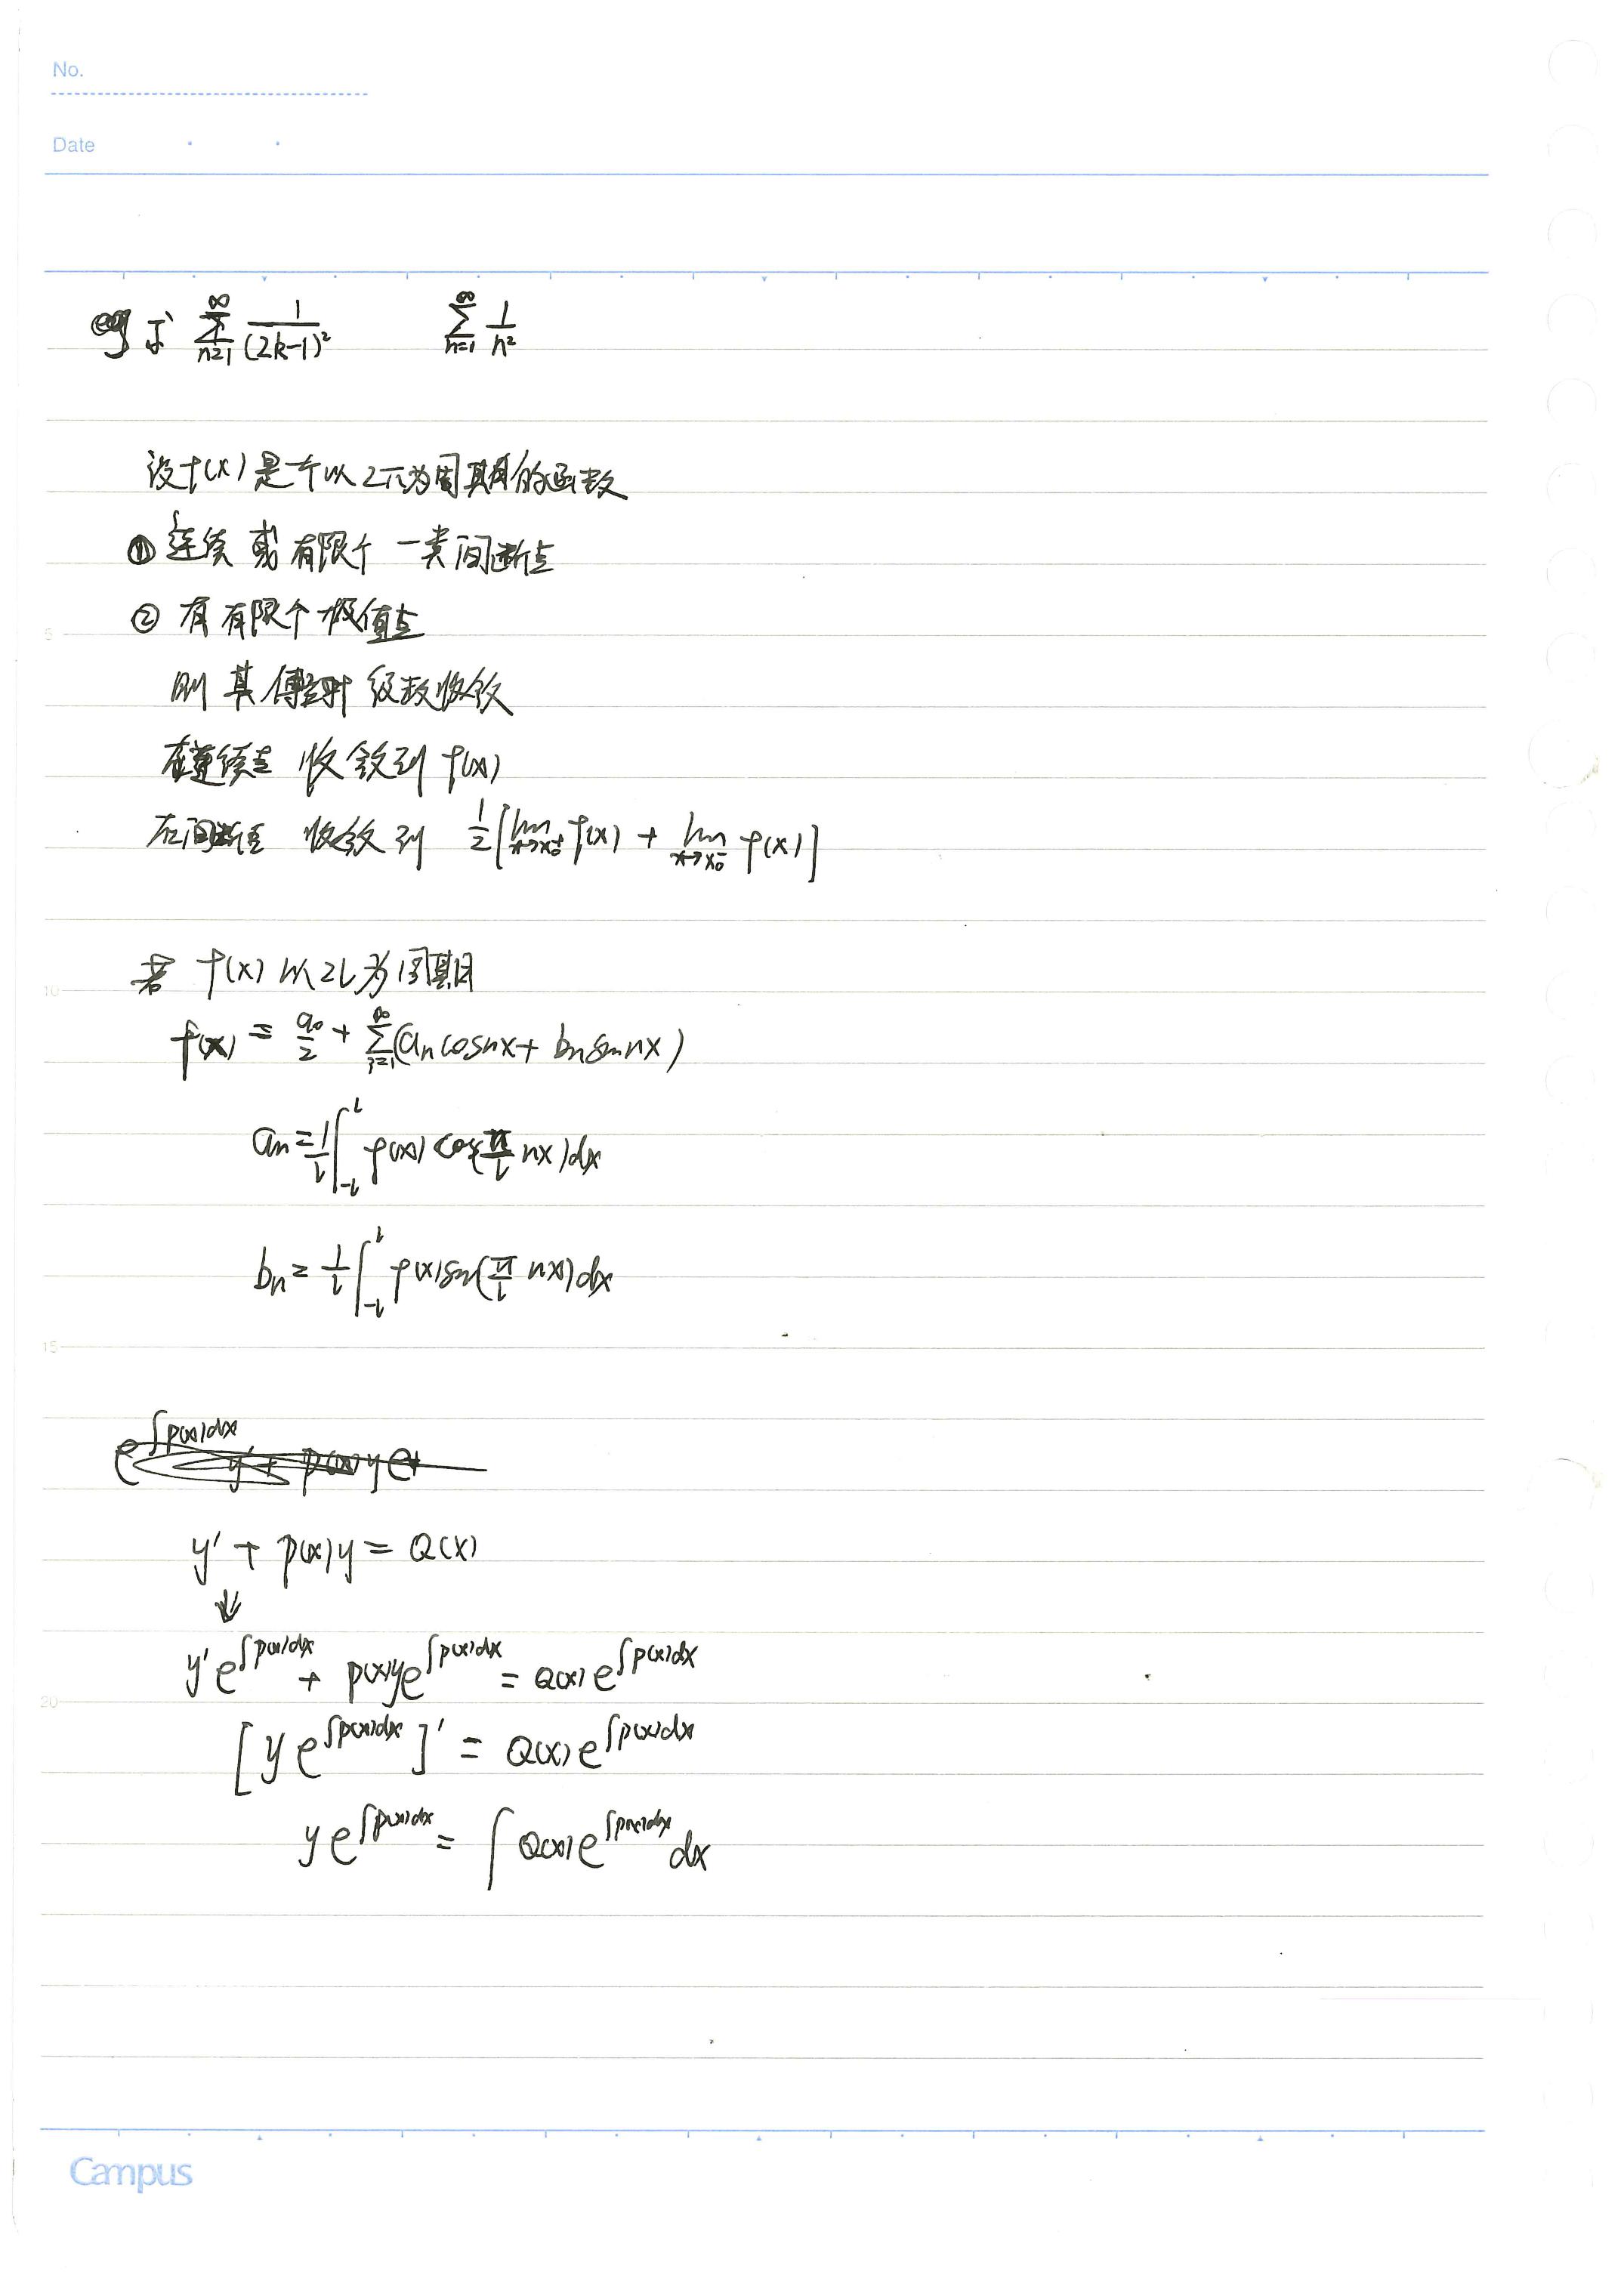 No.
Date
eg 求 $\sum_{n=1}^{\infty} \frac{1}{(2k-1)^2}$ $\sum_{n=1}^{\infty} \frac{1}{n^2}$
设f(x)是一个以2π为周期的函数
① 连续 或 有限个 一类间断点
② 有 有限个 极值点
则 其 傅立叶 级数收敛
在连续点 收敛到 f(x)
在间断点 收敛到 $\frac{1}{2}[\lim_{x \to x_0^+} f(x) + \lim_{x \to x_0^-} f(x)]$
5
若 f(x) 以2l为周期
10
$f(x) = \frac{a_0}{2} + \sum_{n=1}^{\infty}(a_n \cos nx + b_n \sin nx)$
$a_n = \frac{1}{l} \int_{-l}^{l} f(x) \cos(\frac{\pi}{l} nx) dx$
$b_n = \frac{1}{l} \int_{-l}^{l} f(x) \sin(\frac{\pi}{l} nx) dx$
15
$y' + p(x)y = Q(x)$
↓
$y' e^{\int p(x)dx} + p(x) y e^{\int p(x)dx} = Q(x) e^{\int p(x)dx}$
20
$[y e^{\int p(x)dx}]' = Q(x) e^{\int p(x)dx}$
$y e^{\int p(x)dx} = \int Q(x) e^{\int p(x)dx} dx$
Campus